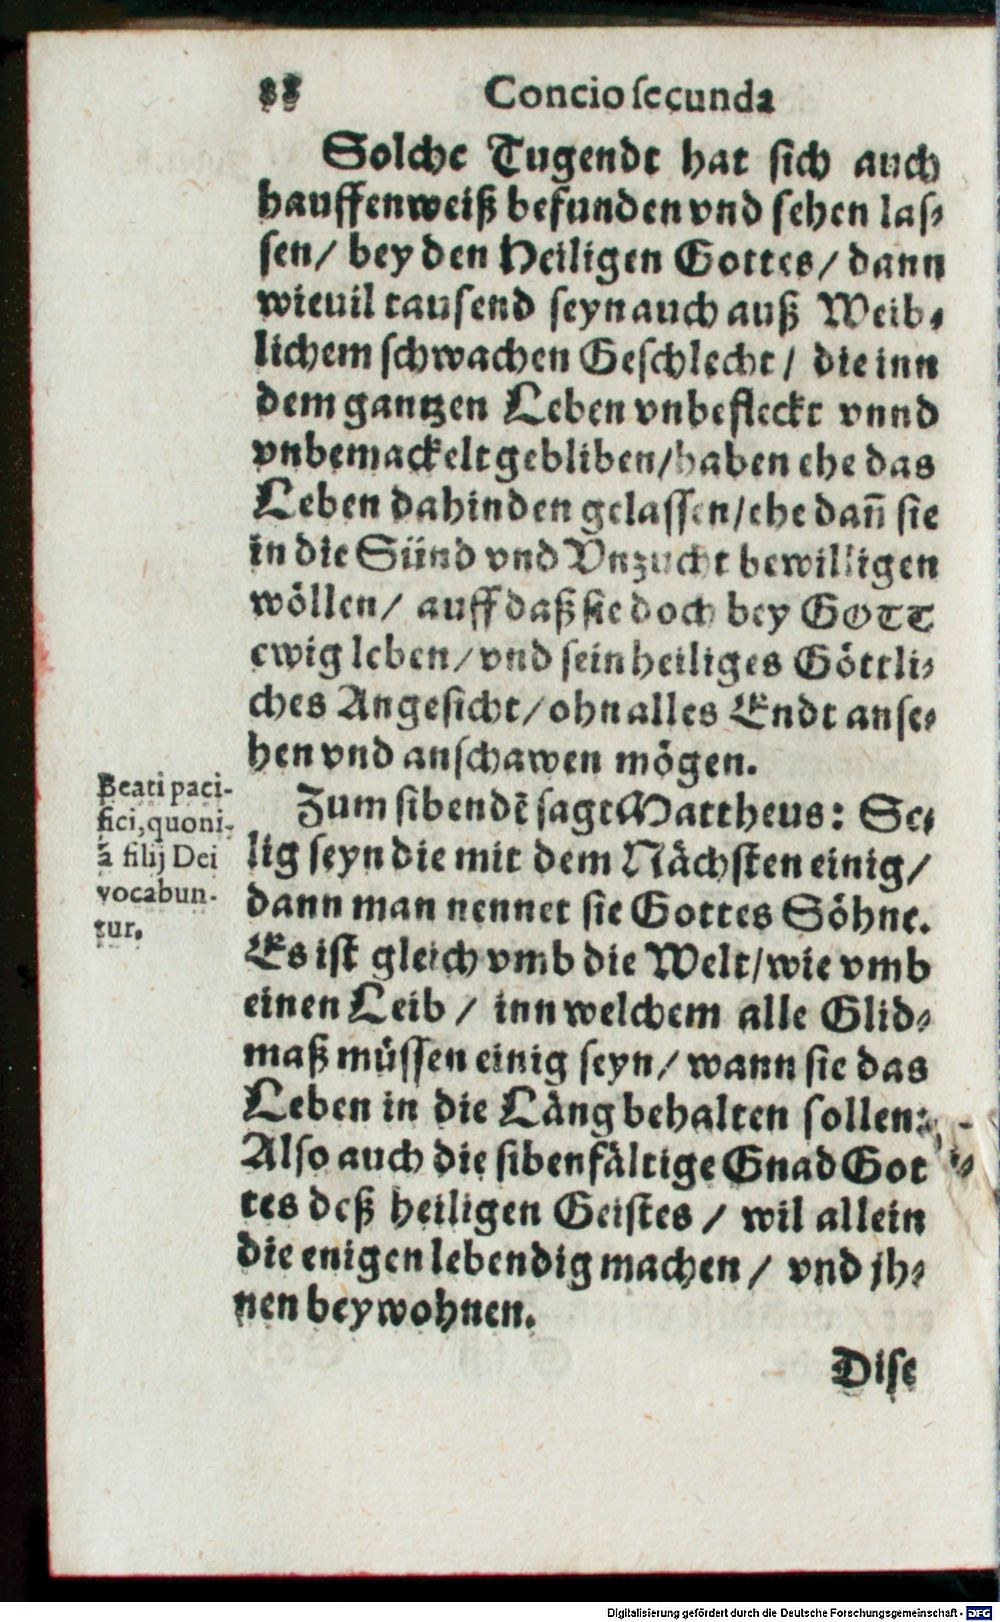 88 Concio ſecunda
Solche Tugendt hat ſich auch
hauffenweiß befunden vnd ſehen laſ⸗
ſen/ bey den Heiligen Gottes/ dann
wieuil tauſend ſeyn auch auß Weib⸗
lichem ſchwachen Geſchlecht/ die inn
dem gantzen Leben vnbefleckt vnnd
vnbemackelt gebliben/ haben ehe das
Leben dahinden gelaſſen/ ehe dañ ſie
in die Sünd vnd Vnzucht bewilligen
wöllen/ auff daß ſie doch bey GOTT
ewig leben/ vnd ſein heiliges Göttli⸗
ches Angeſicht/ ohn alles Endt anſe⸗
hen vnd anſchawen mögen.
Beati paci-
fici, quoni-
ā filij Dei
vocabun-
tur.
Zum ſibendẽ ſagt Mattheus: Se⸗
lig ſeyn die mit dem Nächſten einig/
dann man nennet ſie Gottes Söhne.
Es iſt gleich vmb die Welt/ wie vmb
einen Leib/ inn welchem alle Glid⸗
maß müſſen einig ſeyn/ wann ſie das
Leben in die Läng behalten ſollen:
Alſo auch die ſibenfältige Gnad Got⸗
tes deß heiligen Geiſtes/ wil allein
die enigen lebendig machen/ vnd jh⸗
nen beywohnen.
Diſe
Digitalisierung gefördert durch die Deutsche Forschungsgemeinschaft - DFG